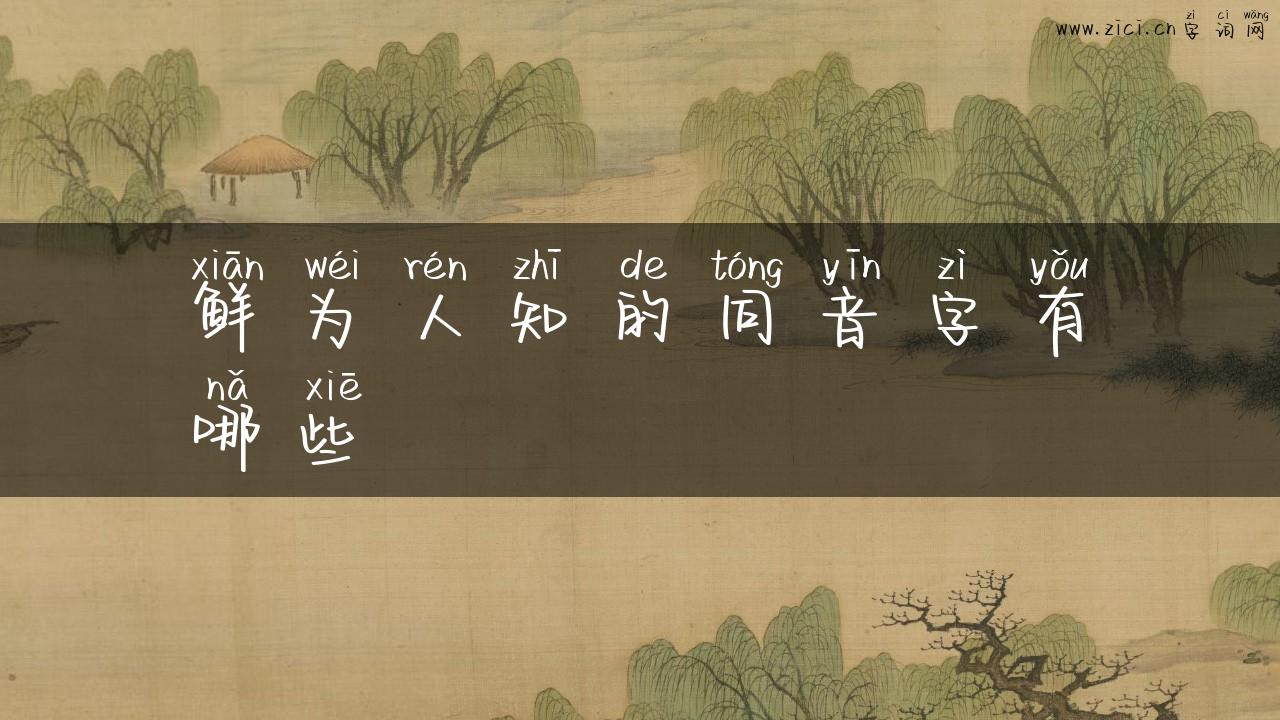 zì cí wǎng
www.zici.cn 字 词 网
xiān wéi rén zhī de tóng yīn zì yǒu
鲜 为 人 知 的 同 音 字 有
nǎ xiē
哪 些